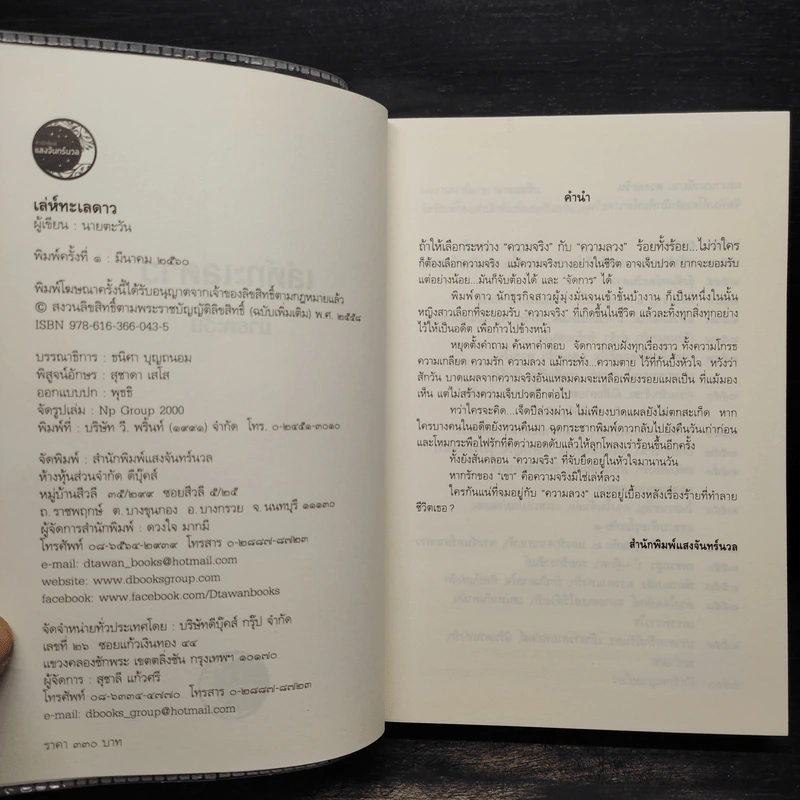 สำนักพิมพ์
แสงจันทร์นวล
เล่ห์ทะเลดาว
ผู้เขียน : นายตะวัน
พิมพ์ครั้งที่ ๑ : มีนาคม ๒๕๖๐
พิมพ์โฆษณาครั้งนี้ได้รับอนุญาตจากเจ้าของลิขสิทธิ์ตามกฎหมายแล้ว
© สงวนลิขสิทธิ์ตามพระราชบัญญัติลิขสิทธิ์ (ฉบับเพิ่มเติม) พ.ศ. ๒๕๕๘
ISBN 978-616-366-043-5
บรรณาธิการ : ธนิศา บุญถนอม
พิสูจน์อักษร : สุชาดา เสโส
ออกแบบปก : พุชชิ่
จัดรูปเล่ม : Np Group 2000
พิมพ์ที่ : บริษัท วี. พริ้นท์ (๑๙๙๑) จำกัด โทร. ๐-๒๔๕๑-๓๐๑๐
จัดพิมพ์ : สำนักพิมพ์แสงจันทร์นวล
ห้างหุ้นส่วนจำกัด ดีบุ๊คส์
หมู่บ้านสีวลี ๓๕/๒๙๙ ซอยสีวลี ๕/๒๕
ถ.ราชพฤกษ์ ต.บางขุนกอง อ.บางกรวย จ.นนทบุรี ๑๑๑๓๐
ผู้จัดการสำนักพิมพ์ : ดวงใจ มากมี
โทรศัพท์ ๐๘-๖๕๖๔-๒๙๓๙ โทรสาร ๐-๒๘๘๗-๘๗๒๓
e-mail: dtawan_books@hotmail.com
website: www.dbooksgroup.com
facebook: www.facebook.com/Dtawanbooks
จัดจำหน่ายทั่วประเทศโดย : บริษัทดีบุ๊คส์ กรุ๊ป จำกัด
เลขที่ ๒๖ ซอยแก้วเงินทอง ๔๔
แขวงคลองชักพระ เขตตลิ่งชัน กรุงเทพฯ ๑๐๑๗๐
ผู้จัดการ : สุชาลี แก้วศรี
โทรศัพท์ ๐๘-๖๓๓๔-๔๗๗๐ โทรสาร ๐-๒๘๘๗-๘๗๒๓
e-mail: dbooks_group@hotmail.com
ราคา ๓๓๐ บาท
คำนำ
ถ้าให้เลือกระหว่าง "ความจริง" กับ "ความลวง" ร้อยทั้งร้อย...ไม่ว่าใคร
ก็ต้องเลือกความจริง แม้ความจริงบางอย่างในชีวิต อาจเจ็บปวด ยากจะยอมรับ
แต่อย่างน้อย...มันก็จับต้องได้ และ "จัดการ" ได้
พิมพ์ดาว นักธุรกิจสาวผู้มุ่งมั่นจนเข้าขั้นบ้างาน ก็เป็นหนึ่งในนั้น
หญิงสาวเลือกที่จะยอมรับ "ความจริง" ที่เกิดขึ้นในชีวิต แล้วละทิ้งทุกสิ่งทุกอย่าง
ไว้ให้เป็นอดีต เพื่อก้าวไปข้างหน้า
หยุดตั้งคำถาม ค้นหาคำตอบ จัดการกลบฝังทุกเรื่องราว ทั้งความโกรธ
ความเกลียด ความรัก ความลวง แม้กระทั่ง...ความตาย ไว้ที่ก้นบึ้งหัวใจ หวังว่า
สักวัน บาดแผลจากความจริงอันแหลมคมจะเหลือเพียงรอยแผลเป็น ที่แม้มอง
เห็น แต่ไม่สร้างความเจ็บปวดอีกต่อไป
ทว่าใครจะคิด...เจ็ดปีล่วงผ่าน ไม่เพียงบาดแผลยังไม่ตกสะเก็ด หาก
ใครบางคนในอดีตยังหวนคืนมา ฉุดกระชากพิมพ์ดาวกลับไปยังคืนวันเก่าก่อน
และโหมกระพือไฟรักที่คิดว่ามอดดับแล้วให้ลุกโพลงเร่าร้อนขึ้นอีกครั้ง
ทั้งยังสั่นคลอน "ความจริง" ที่จับยึดอยู่ในหัวใจมานานวัน
หากรักของ "เขา" คือความจริงมิใช่เล่ห์ลวง
ใครกันแน่ที่จมอยู่กับ "ความลวง" และอยู่เบื้องหลังเรื่องร้ายที่ทำลาย
ชีวิตเธอ?
สำนักพิมพ์แสงจันทร์นวล